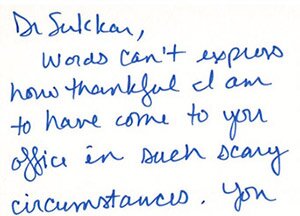 Dr Sukkar,
words can't express
how thankful I am
to have come to you
office in such scary
circumstances. You